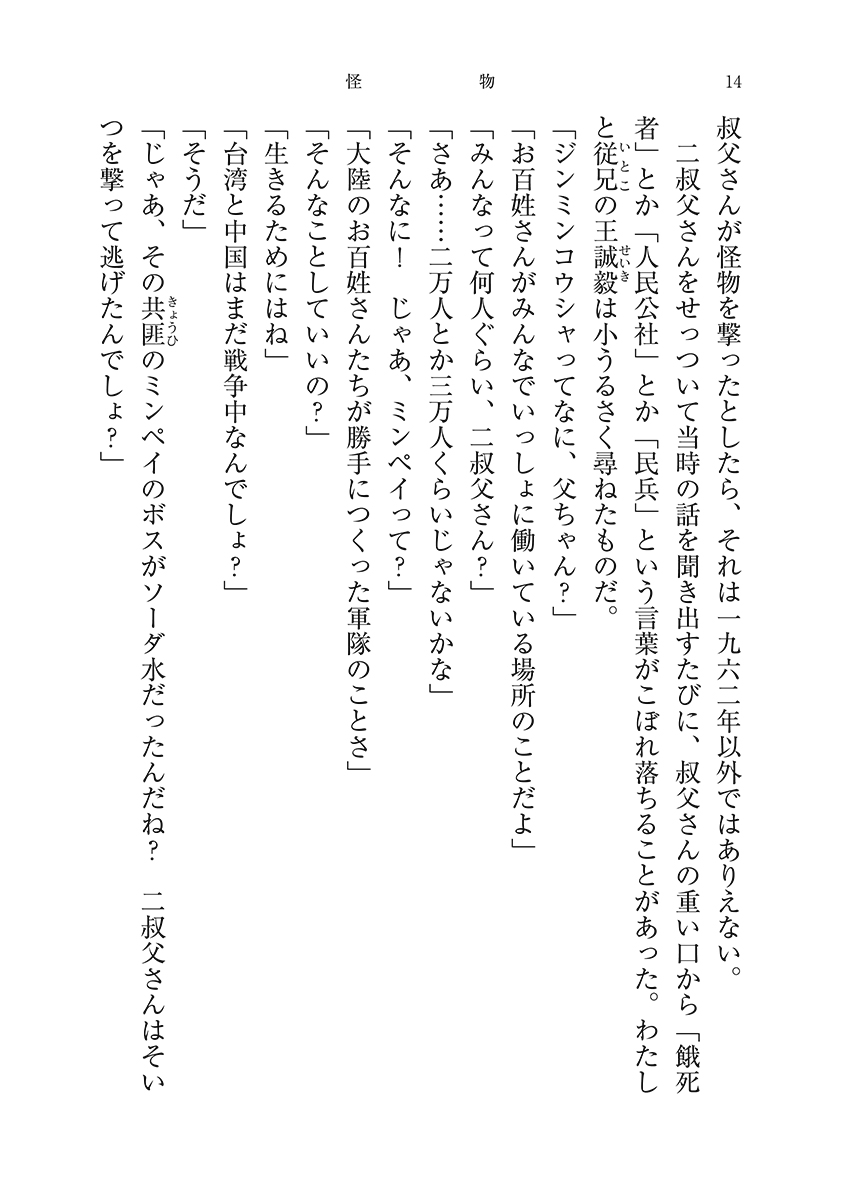 14
怪物
叔父さんが怪物を撃ったとしたら、それは一九六二年以外ではありえない。
　二叔父さんをせっついて当時の話を聞き出すたびに、叔父さんの重い口から「餓死
者」とか「人民公社」とか「民兵」という言葉がこぼれ落ちることがあった。わたし
と従兄いとこの王誠毅せいきは小うるさく尋ねたものだ。
「ジンミンコウシャってなに、父ちゃん？」
「お百姓さんがみんなでいっしょに働いている場所のことだよ」
「みんなって何人ぐらい、二叔父さん？」
「さあ……二万人とか三万人くらいじゃないかな」
「そんなに！　じゃあ、ミンペイって？」
「大陸のお百姓さんたちが勝手につくった軍隊のことさ」
「そんなことしていいの？」
「生きるためにはね」
「台湾と中国はまだ戦争中なんでしょ？」
「そうだ」
「じゃあ、その共匪きょうひのミンペイのボスがソーダ水だったんだね？　二叔父さんはそい
つを撃って逃げたんでしょ？」